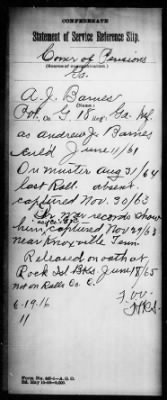 CONFEDERATE
Statement of Service Reference Slip.
Comr of Pensions
Ga.
A. J. Barnes
(Name.)
Pvt. Co G. 18 Regt. Ga. Inf.
as Andrew J. Barnes
enld June 11/61
On muster Aug 31/64
last Roll. absent.
captured Nov. 30/63
records show
him captured Nov 29/63
near Knoxville Tenn
Released on oath at
Rock Id Bks June 18/65
not on Rolls Co. C.
6-19-16
11